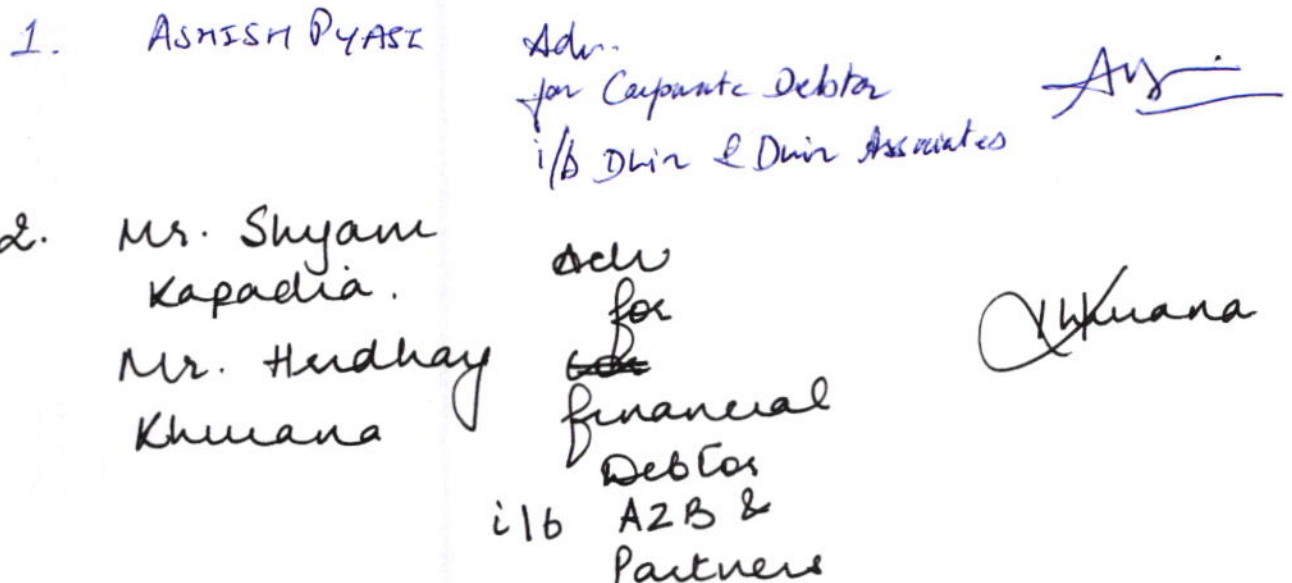 1. ASHISH PYASI Adv.
for Corporate Debtor
i/b Dhir & Dhir Associates
2. Mr. Shyam Adv
Kapadia. for
Mr. Hrudhay
Khurana financial
Debtor
i/b AZB &
Partners